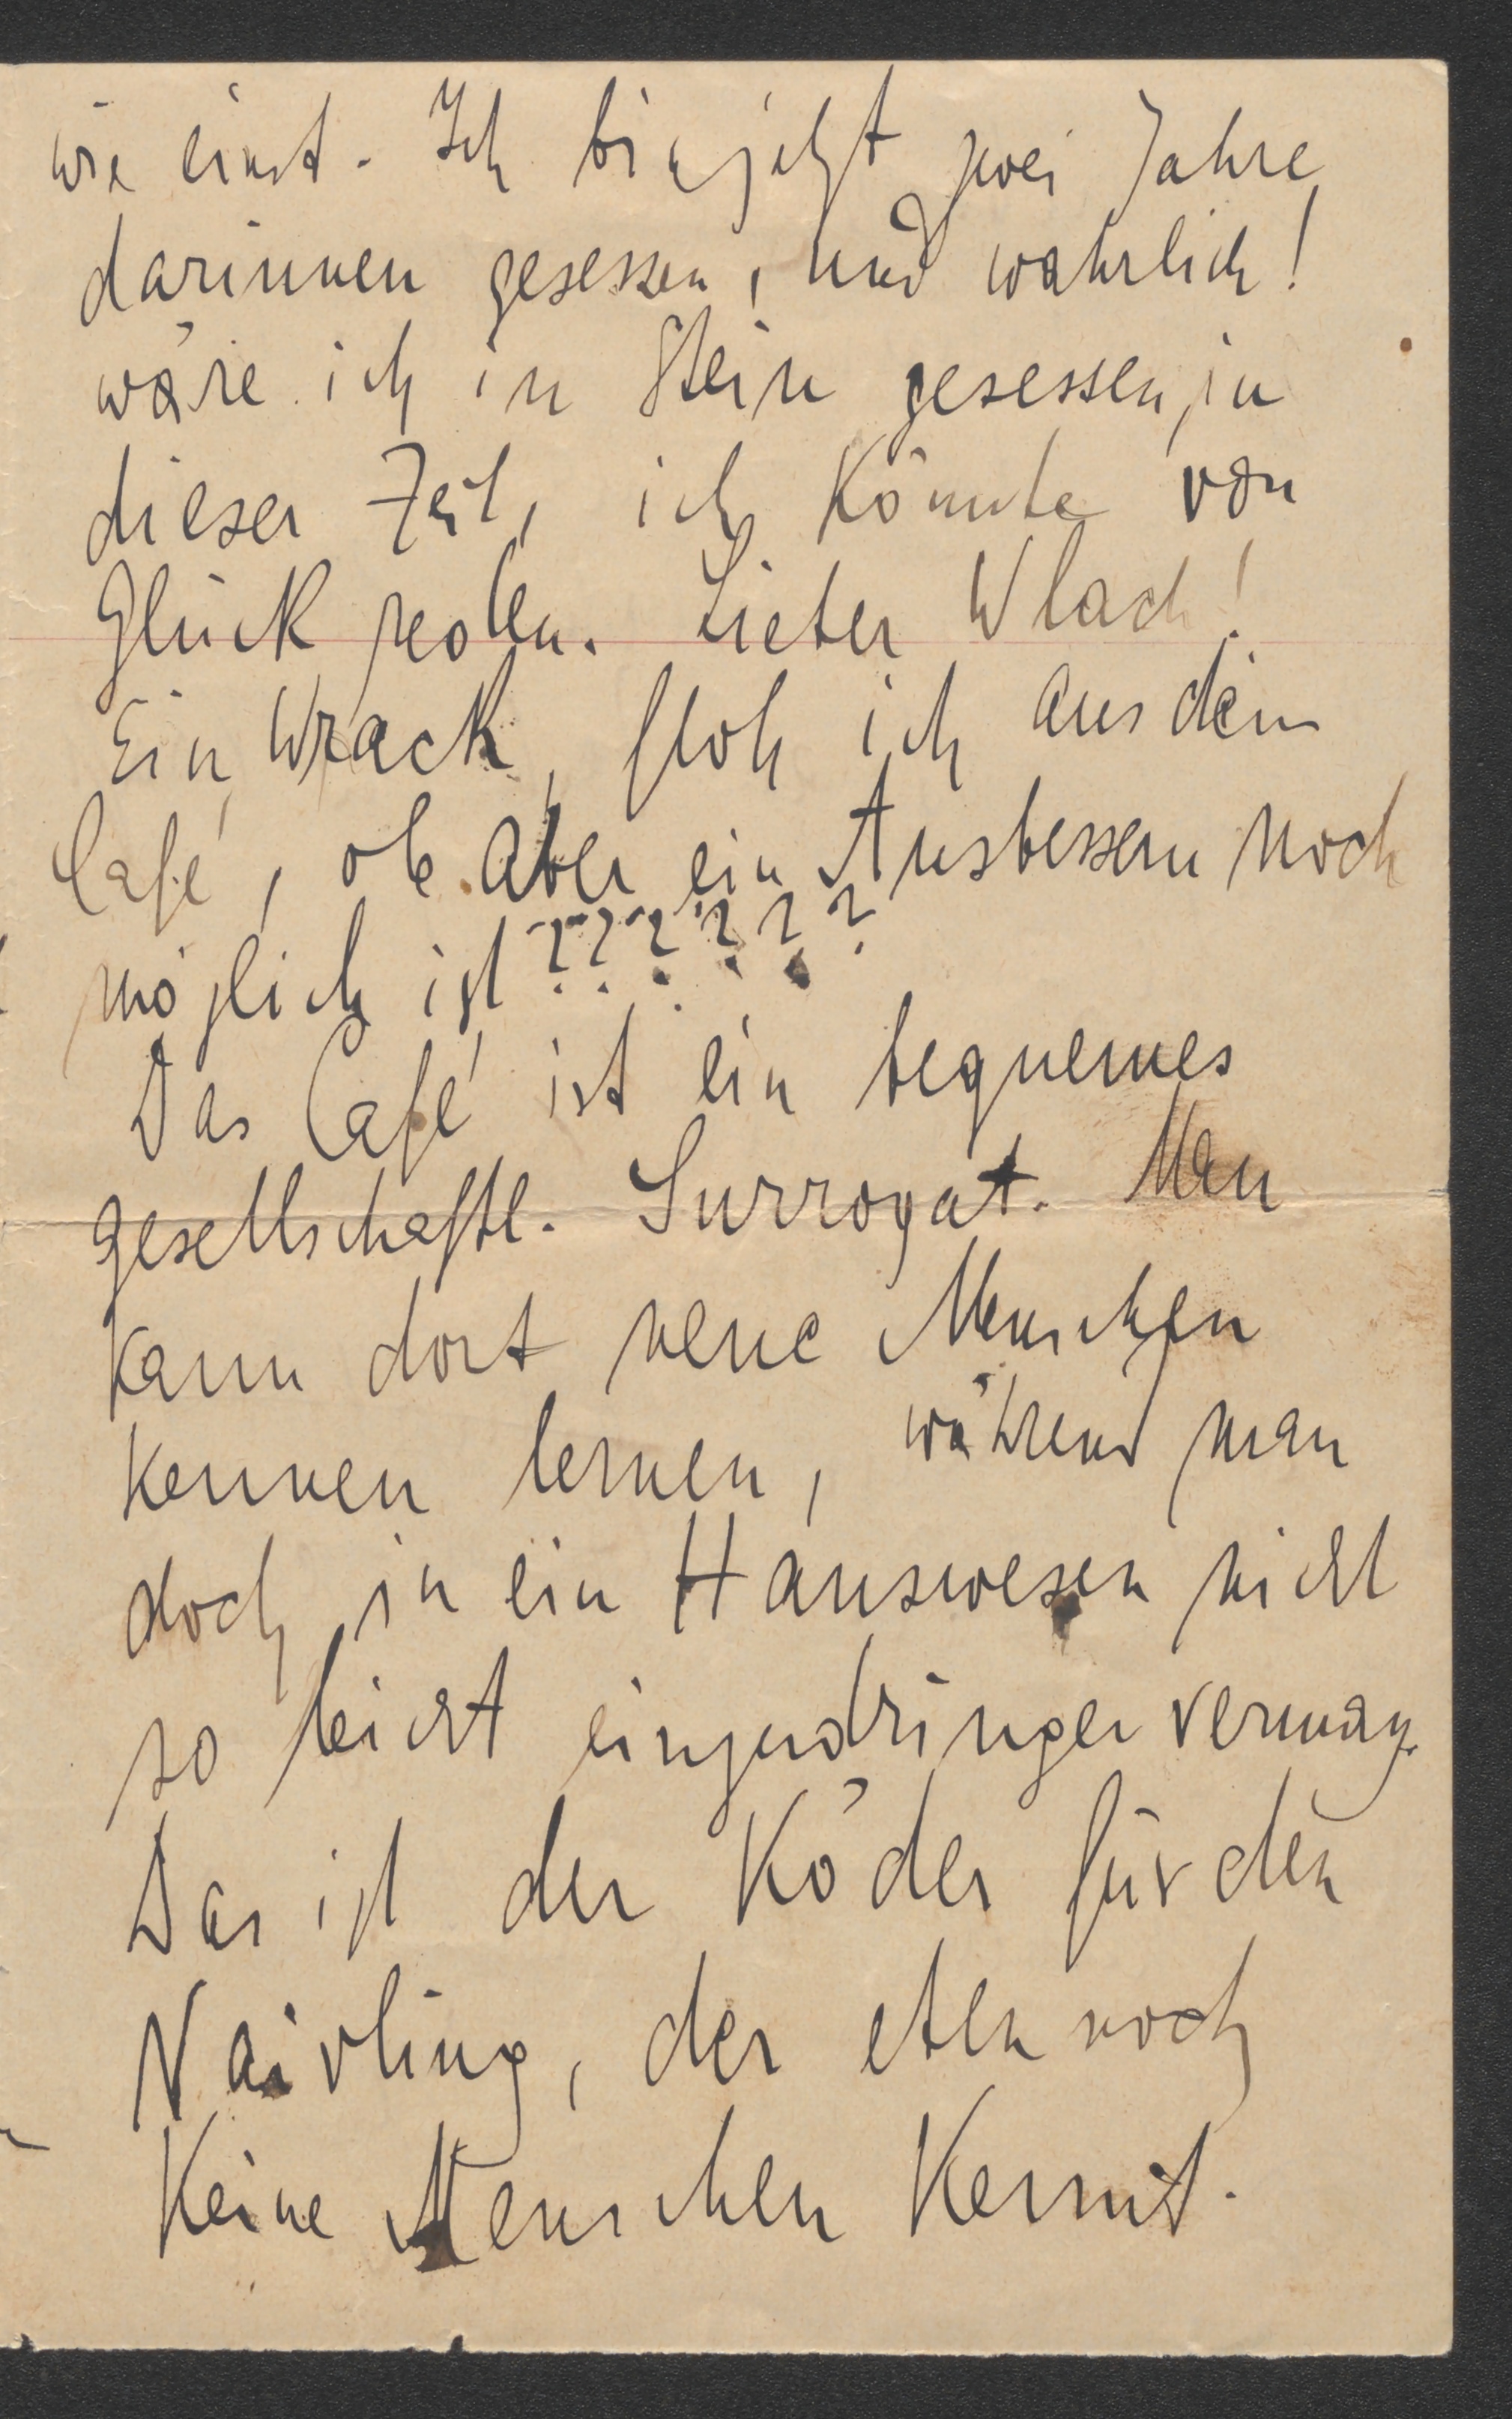 wie einst. Ich bin jetzt zwei Jahre
darinnen gesessen, und wahrlich!
wäre ich in Stein gesessen, in
dieser Zeit, ich könnte von
Glück reden. Lieber Wlach!
Ein Wrack, floh ich aus dem
Café, ob aber ein Ausbessern noch
möglich ist ??????
Das Café ist ein bequemes
gesellschaftl. Surrogat. Man
kann dort neue Menschen
kennen lernen, während man
doch in ein Hauswesen nicht
so leicht einzudringen vermag.
Das ist der Köder für den
Naivling, der eben noch
keine Menschen kennt.